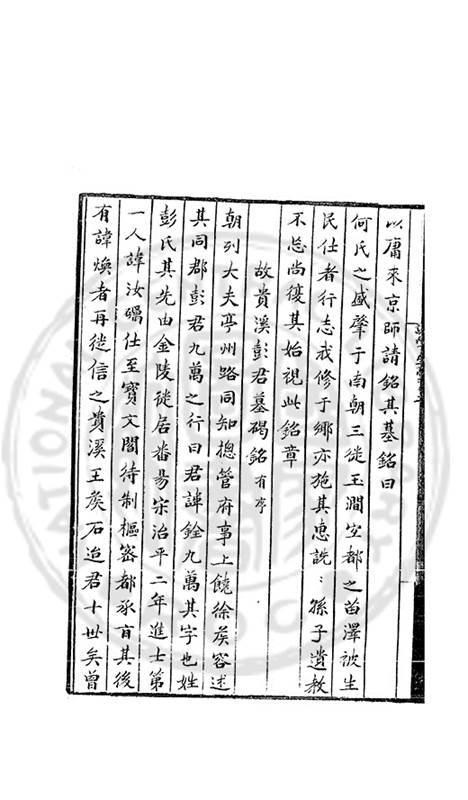 以薦來京師請銘其墓銘曰
何氏之盛肇于南朝三徙玉澗宜都之苗澤被生
民仕者行志我修于鄉亦施其惠詵〻孫子遺教
不忘尚復其始視此銘章
故貴溪彭君墓碣銘有序
朝列大夫亭州路同知摠管府事上饒徐矦容述
其同郡彭君九萬之行曰君諱銓九萬其字也姓
彭氏其先由金陵徙居番昜宋治平二年進士第
一人諱汝礪仕至寳文閣待制樞宻都承㫖其後
有諱煥者再徙信之貴溪王矦石迨君十丗矣曾